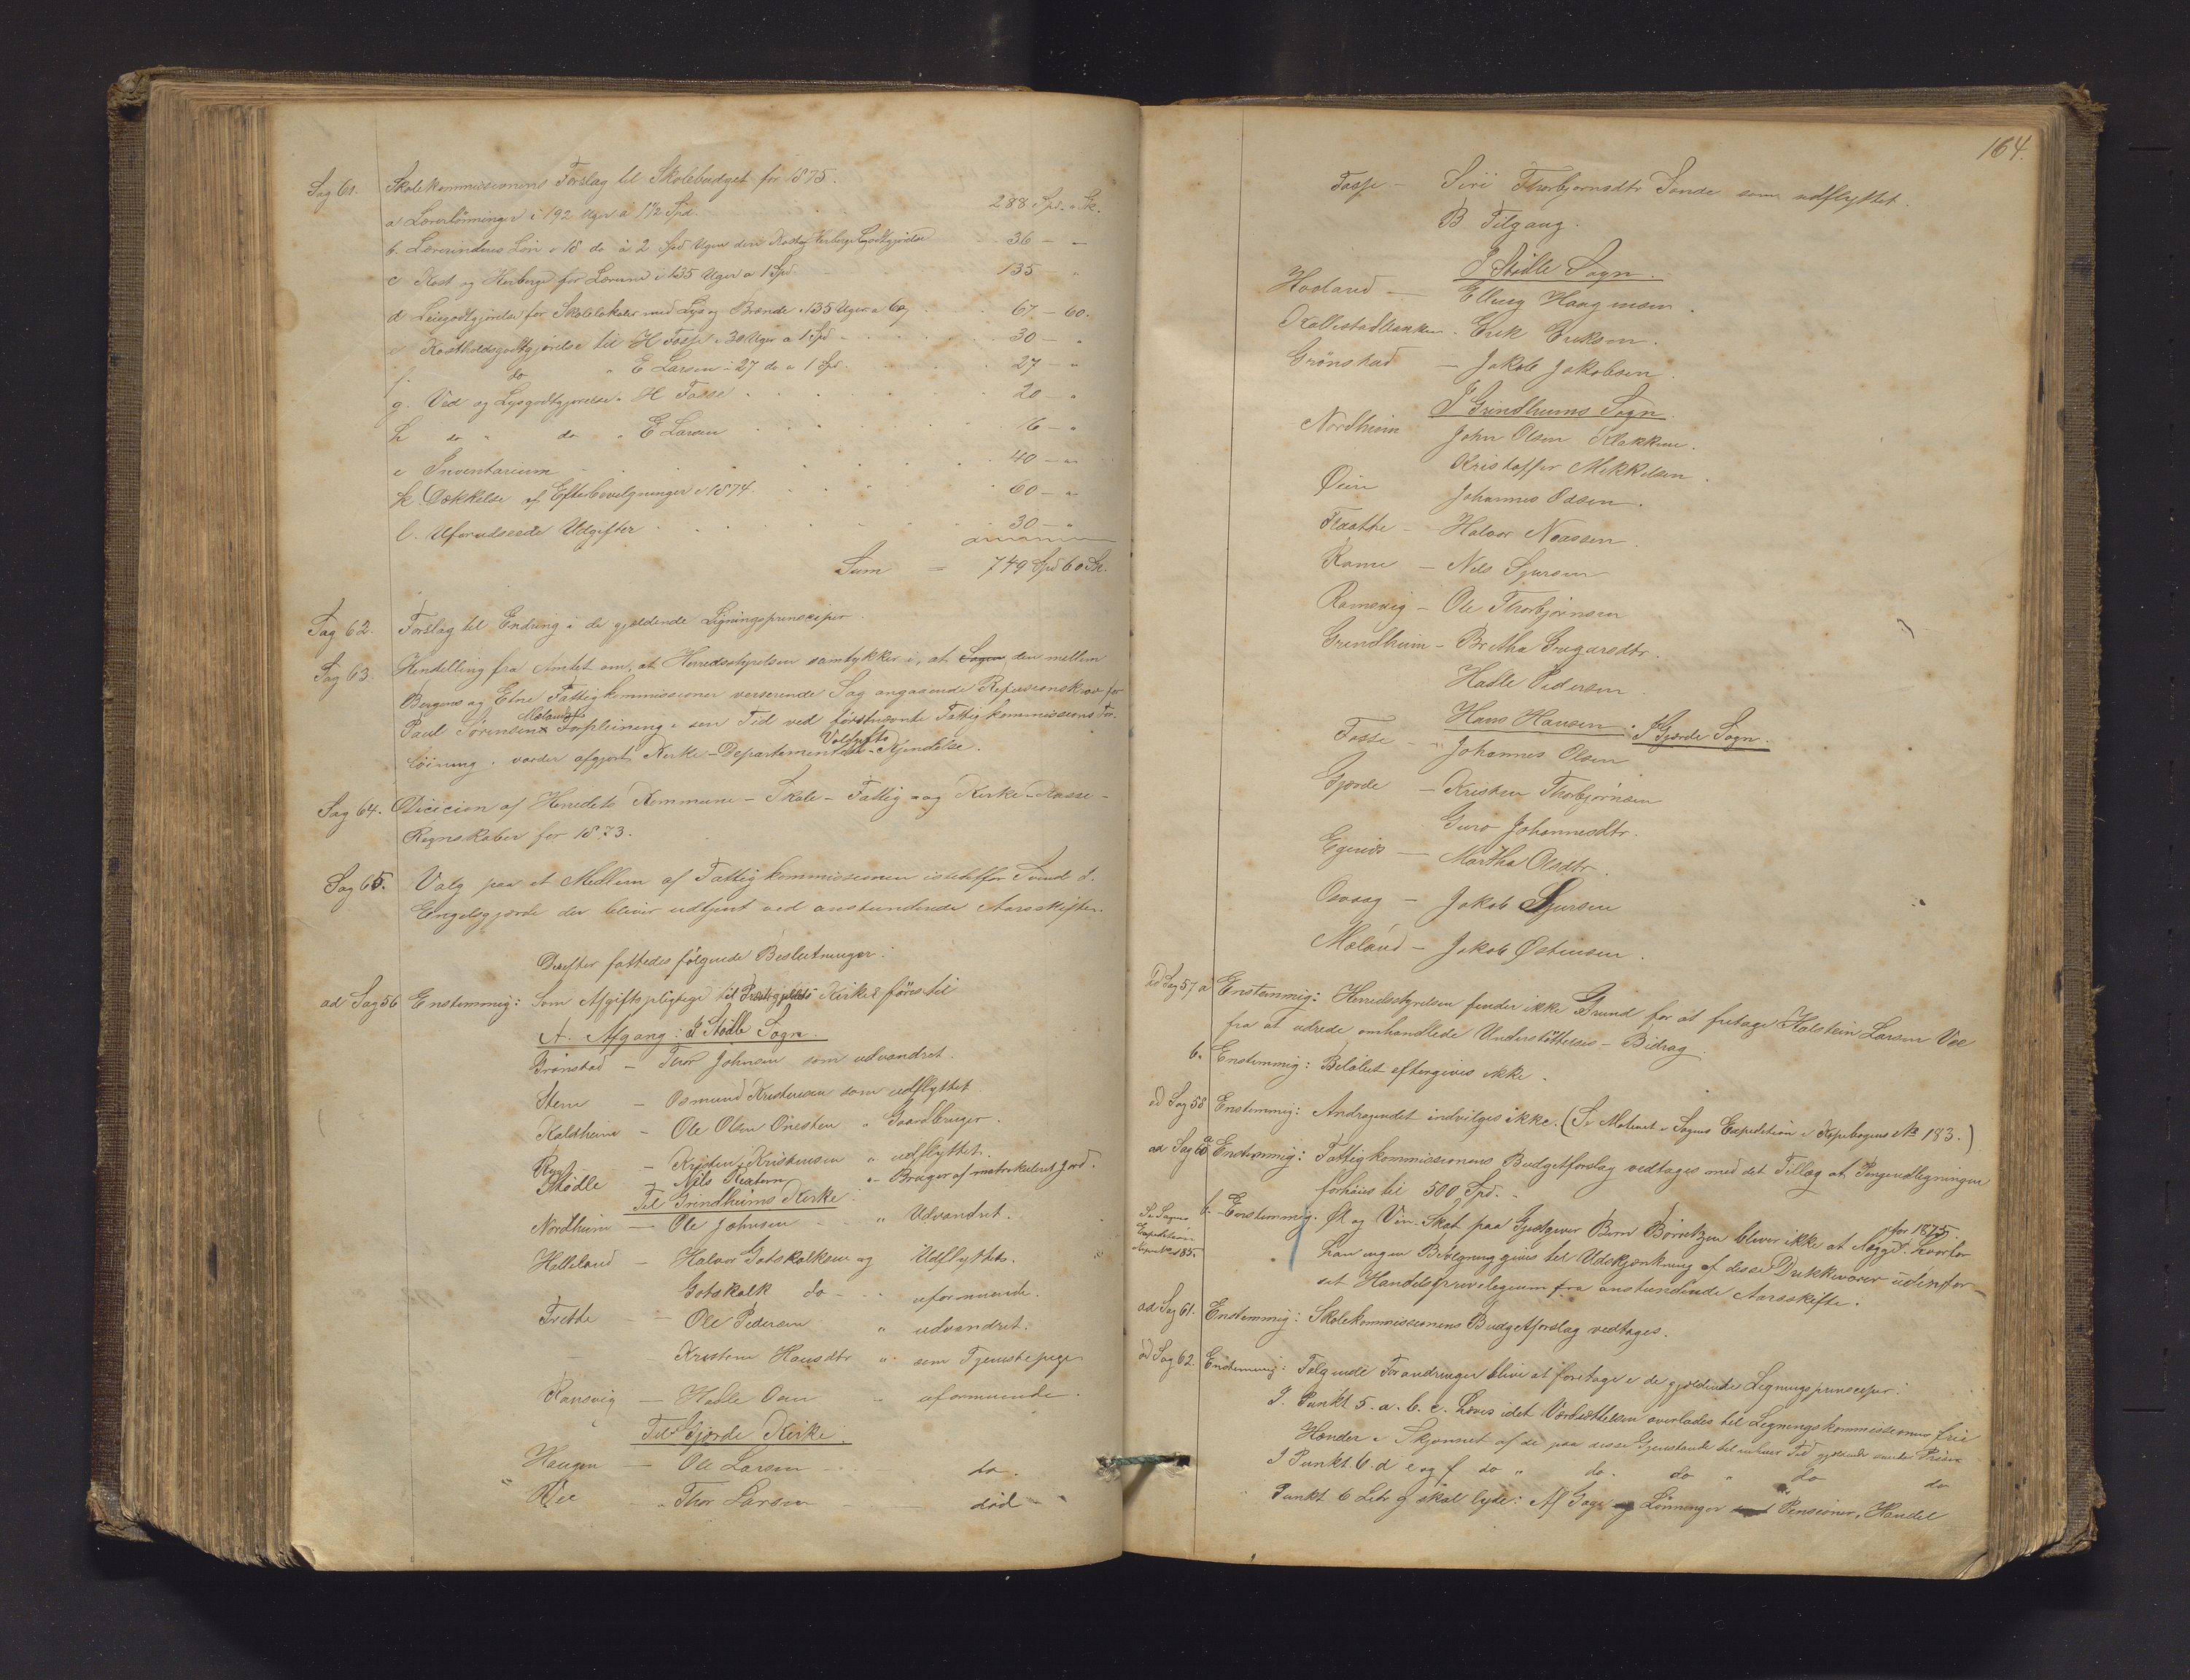 Sag 61. Skolekommissionens Forslag til Skolebudget for 1875.
a Lærerlønninger i 192 Uger a 1 1/2 Spd. 288 Spd. " Sk.
b. Lærerindens Løn i 18 do à 2 Spd Ugen den Kost og Herberge Godtgjørelse 36 – "
c Kost og Herberge for Lærerne i 135 Uger a 1 Spd 135 "
d Leiegodtgjørelse for Skolelokaler med Lys og Brænde i 135 Uger a 60 67 – 60.
e Kostholdsgodtgjørelse til H Fosse i 30 Uger a 1 Spd 30 – "
f. do " E Larsen i 27 do a 1 Spd. 27 – "
g. Ved og Lysgodtgjørelse " H Fosse 20 – "
h do " do " E Larsen 16 – "
i Inventarium 40 – "
k. Dækkelse af Efterbevilgninger i 1874. 60 – "
l. Uforudseede Udgifter 30 – "
Sum = 749 Spd 60 Sk.
Sag 62. Forslag til Endring i de gjældende Ligningsprinciper.
Sag 63. Henstilling fra Amtet om, at Herredsstyrelsen samtykker i, at Sagen den mellem
Bergens og Etne Fattigkommissioner verserende Sag angaaende Refusionskrav for
Paul Sørensen Mælands Forpleining i sen Tid ved førstnævnte Fattigkommissions For-
føining, vorder afgjort Kirke-Departementets Voldgifts-Kjendelse.
Sag 64. Dicicion af Herredets Kommune- Skole- Fattig- og Kirke-Kasse-
Regnskaber for 1873.
Sag 65. Valg paa et Medlem af Fattigkommissionen istedetfor Svend S.
Engelsgjerde der bliver udtjent ved anstundende Aarsskifte.
Derefter fattedes følgende Beslutninger:
ad Sag 56 Enstemmig: Som Afgiftspligtige til Præstegjeldets Kirker føres til
A. Afgang: I Stødle Sogn.
Grønstad – Thor Johnsen som udvandret.
Stene – Osmund Kristensen som udflyttet.
Kaldheim – Ole Olsen Ønesten " Gaardbruger.
Rygg – Kristen Kristensen " udflyttet.
Stødle – Nils " Bruger af matrikuleret Jord.
Til Grindheims Kirke:
Nordheim – Ole Johnsen " Udvandret.
Helleland – Halvor Gotskalksen og Udflyttet.
Gotskalk do uformuende.
Frette – Ole Pedersen " udvandret.
Kristense Hansdtr " som Tjenestepige
Ramsvig – Hadle Oen " uformuende.
Til Gjerde Kirke.
Haugen – Ole Larsen do.
Vee – Thor Larsen død
164.
Fosse – Siri Thorbjørnsdtr Sande som udflyttet.
B Tilgang.
I Stødle Sogn.
Høiland – Elling Haagensen.
Kallestadbakken. Erik Eriksen.
Grønstad – Jakob Jakobsen.
I Grindheims Sogn.
Nordheim John Olsen Klakken.
Kristoffer Mikkelsen.
Øien Johannes Odsen.
Traathe – Halvor Noassen.
Rame – Nils Sjursen
Ramsvig – Ole Thorbjørnsen
Grindheim – Britha Gregarsdtr.
Hadle Pedersen
Hans Hansen. I Gjerde Sogn.
Fosse – Johannes Olsen
Gjerde – Kristen Thorbjørnsen
Guro Johannesdtr.
Egenes – Martha Olsdtr.
Osvaag – Jakob Sjursen
Mæland – Jakob Østensen.
Ad Sag 57 a Enstemmig: Herredsstyrelsen finder ikke Grund for at fritage Holstein Larsen Vee
fra at udrede omhandlede Understøttelses-Bidrag.
b. Enstemmig: Beløbet eftergives ikke.
ad Sag 58 Enstemmig: Andragendet indvilges ikke. (Se Motivet i Sagens Expedition i Kopibogens No 183.)
ad Sag 60 a Enstemmig: Fattigkommissionens Budgetforslag vedtages med det Tillæg at Pengeudligningen
forhøies til 500 Spd.
Se Sagens Expedition Kopibok 185. b. Enstemmig. Øl og Vin-Skat paa Gjestgiver Børn Børntzen bliver ikke at lægge for 1875. hvorfor
han ingen Bevilgning gives til Udskjænkning af disse Drikkevarer udenfor
sit Handelsprivilegium fra anstundende Aarsskifte.
ad Sag 61. Enstemmig: Skolekommissionens Budgetforslag vedtages.
ad Sag 62. Enstemmig: Følgende Forandringer blive at foretage i de gjældende Ligningsprinciper:
I. Punkt 5. a. b. c. hæves idet Værdsættelsen overlades til Ligningskommissionens frie
Hænder i Skjønnet af de paa disse Gjenstande til enhver Tid gjældende Priser
I Punkt. 6. d e og f do " do. do " do do
Punkt 6 Litr g skal lyde: Af Gage og Lønninger samt Pensioner, Handel